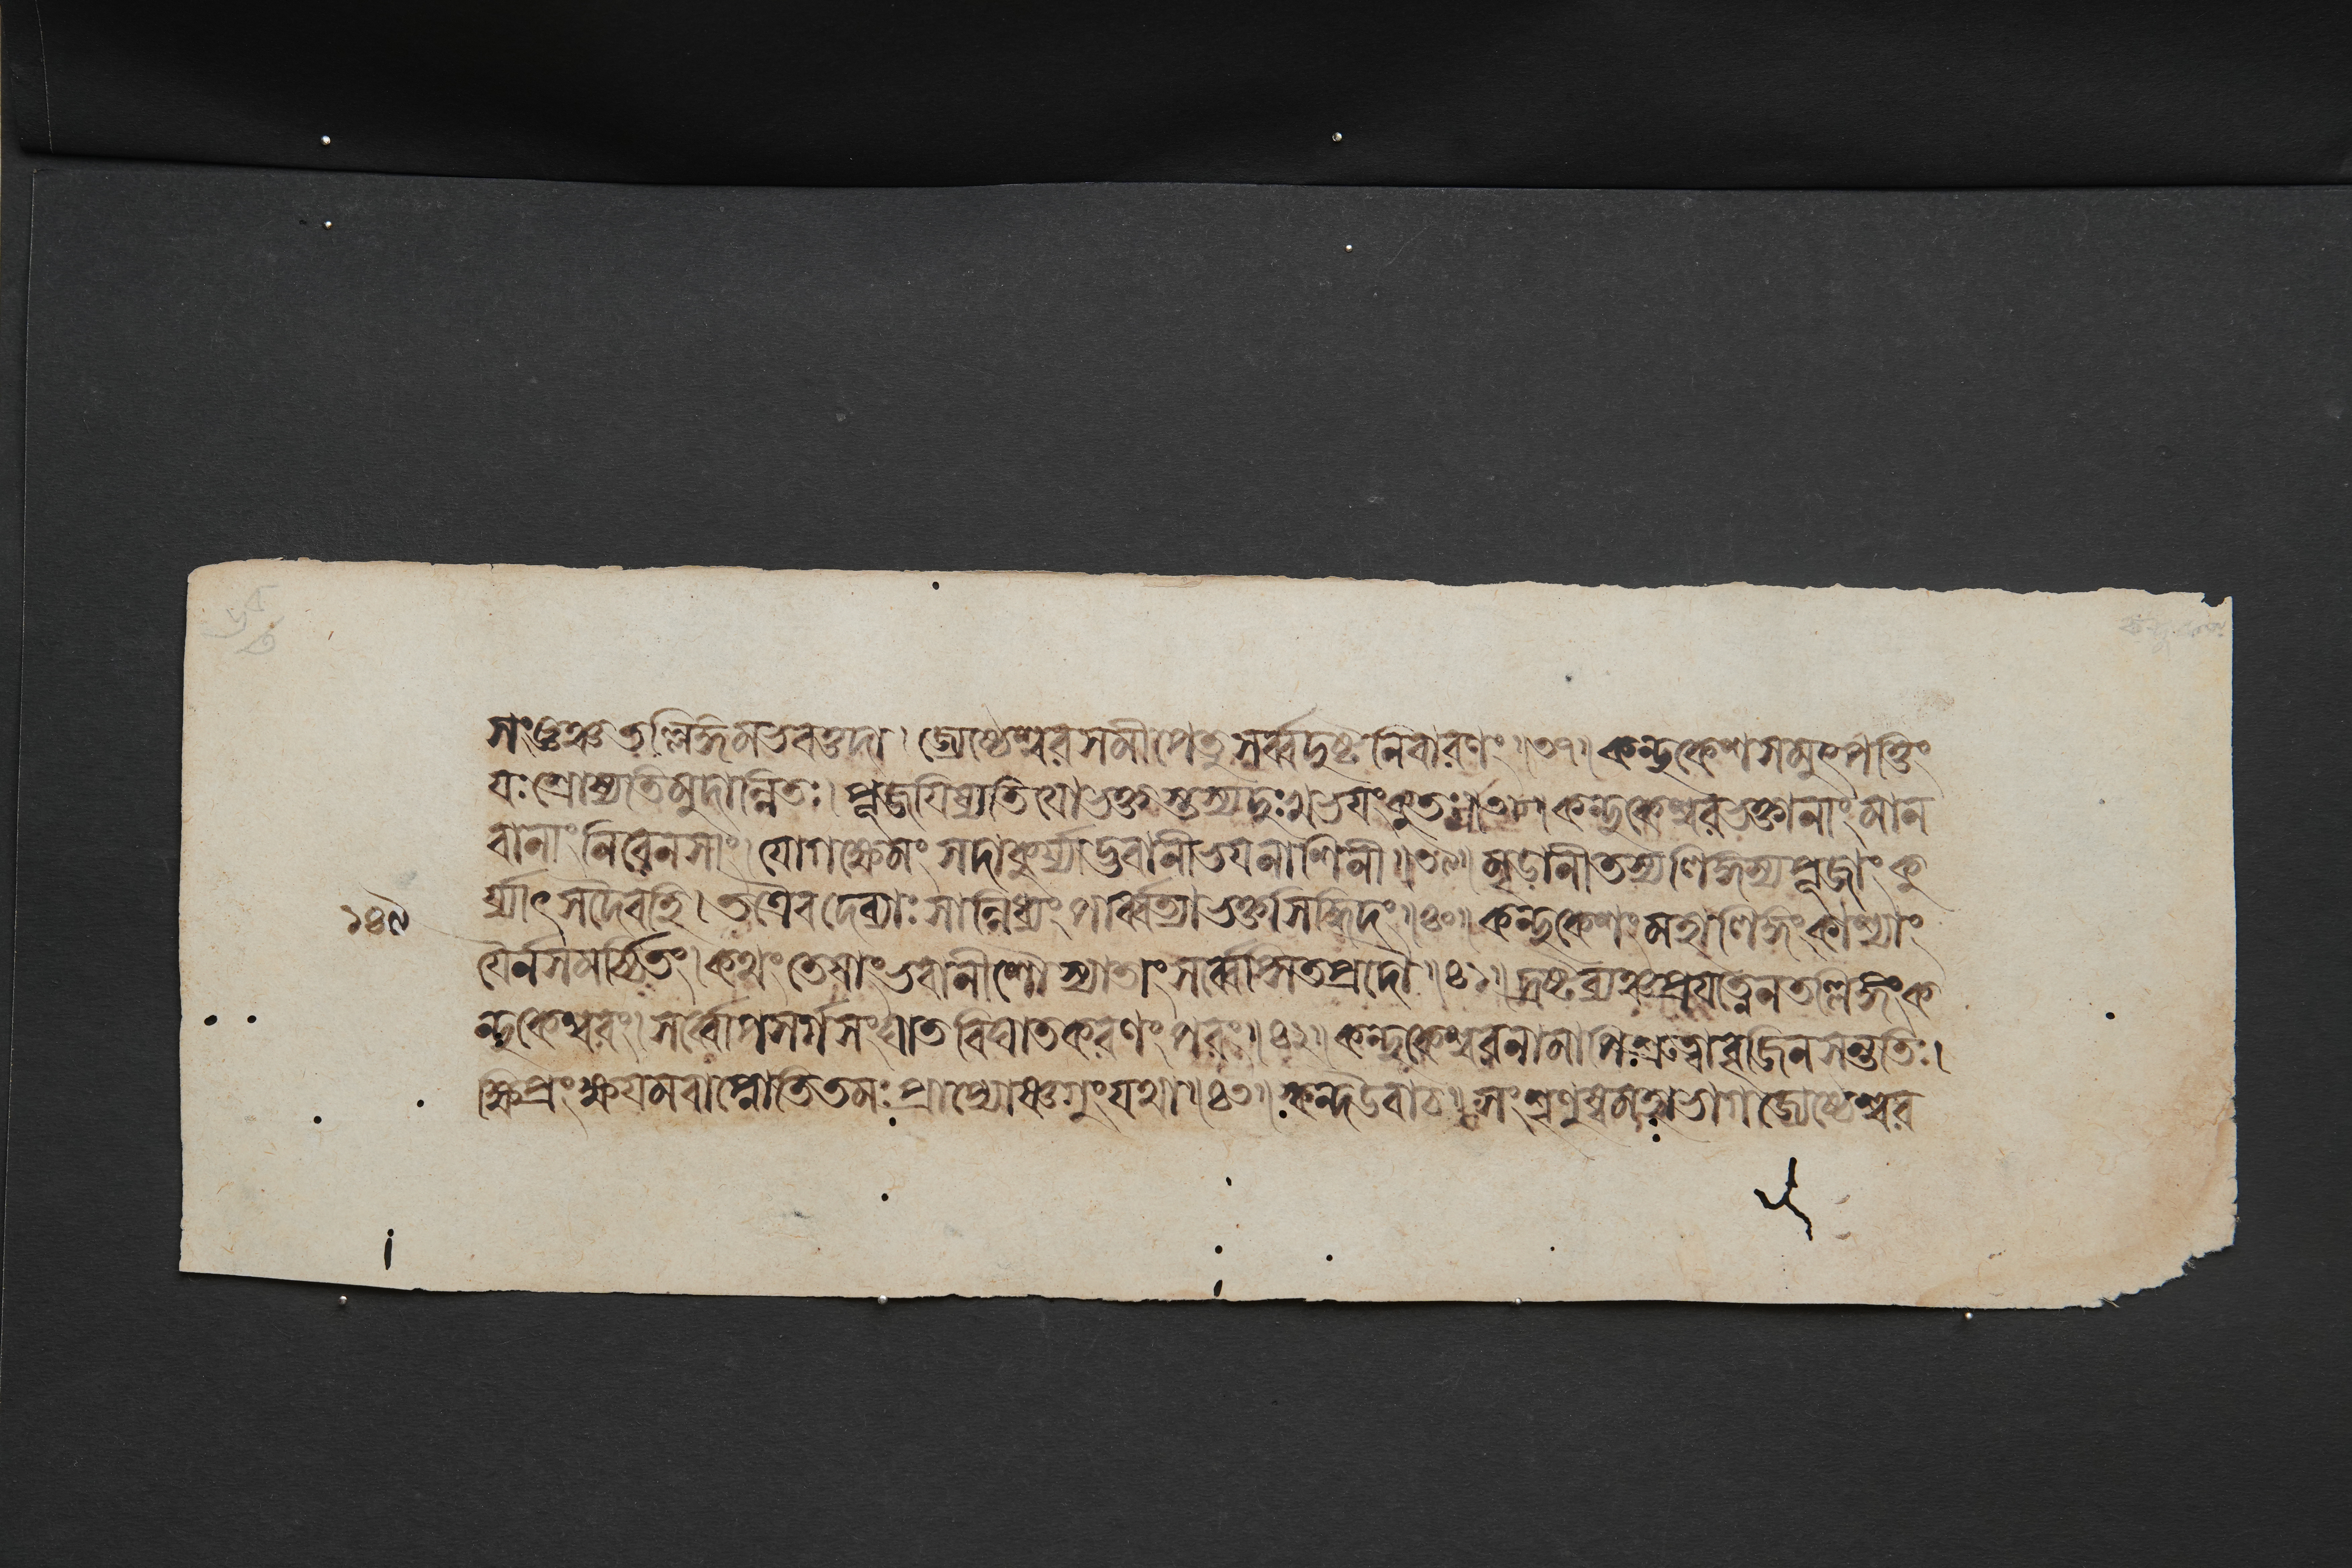 সংপ্লুঞ্চতল্লিঙ্গমভবত্তদা। জ্যেষ্ঠেশ্বরসমীপেতু সর্ব্বদুষ্টনিবারণং॥৩৭॥ কন্দুকেশসমুৎপত্তিং
যঃ শ্রোষ্যতিমুদান্বিতঃ। পূজয়িষ্যতিযোভক্তস্তস্যদুঃখভয়ংকুতঃ॥৩৮॥ কন্দুকেশ্বরভক্তানাংমান
বানাংনিরেনসাং। যোগক্ষেমং সদাকুর্য্যাদ্ভবানীভয়নাশিনী॥৩৯॥ মৃড়ানীতস্যলিঙ্গস্যপূজাংকু
র্য্যাৎসদৈবহি। তত্রৈবদেব্যাঃসান্নিধ্যং পার্ব্বত্যাভক্তসিদ্ধিদং॥৪০॥ কন্দুকেশংমহালিঙ্গংকাশ্যাং
যৈর্নসমর্চ্চিতং। কথং তেষাংভবানীশৌস্যাতাং সর্ব্বেপ্সিতপ্রদৌ॥৪১॥ দ্রষ্টব্যঞ্চপ্রযত্নেনতল্লিঙ্গংক
ন্দুকেশ্বরং। সর্ব্বোপসর্গসংঘাতবিঘাতকরণং পরং॥৪২॥ কন্দুকেশ্বরনামাপিশ্রুত্বাবৃজিনসন্ততিঃ।
ক্ষিপ্রং ক্ষয়মবাপ্নোতিতমঃ প্রাপ্যোষ্ণগুংযথা॥৪৩॥ স্কন্দউবাচ॥ সংশৃণুষ্বমহাভাগজ্যেষ্ঠেশ্বর
১৪৯